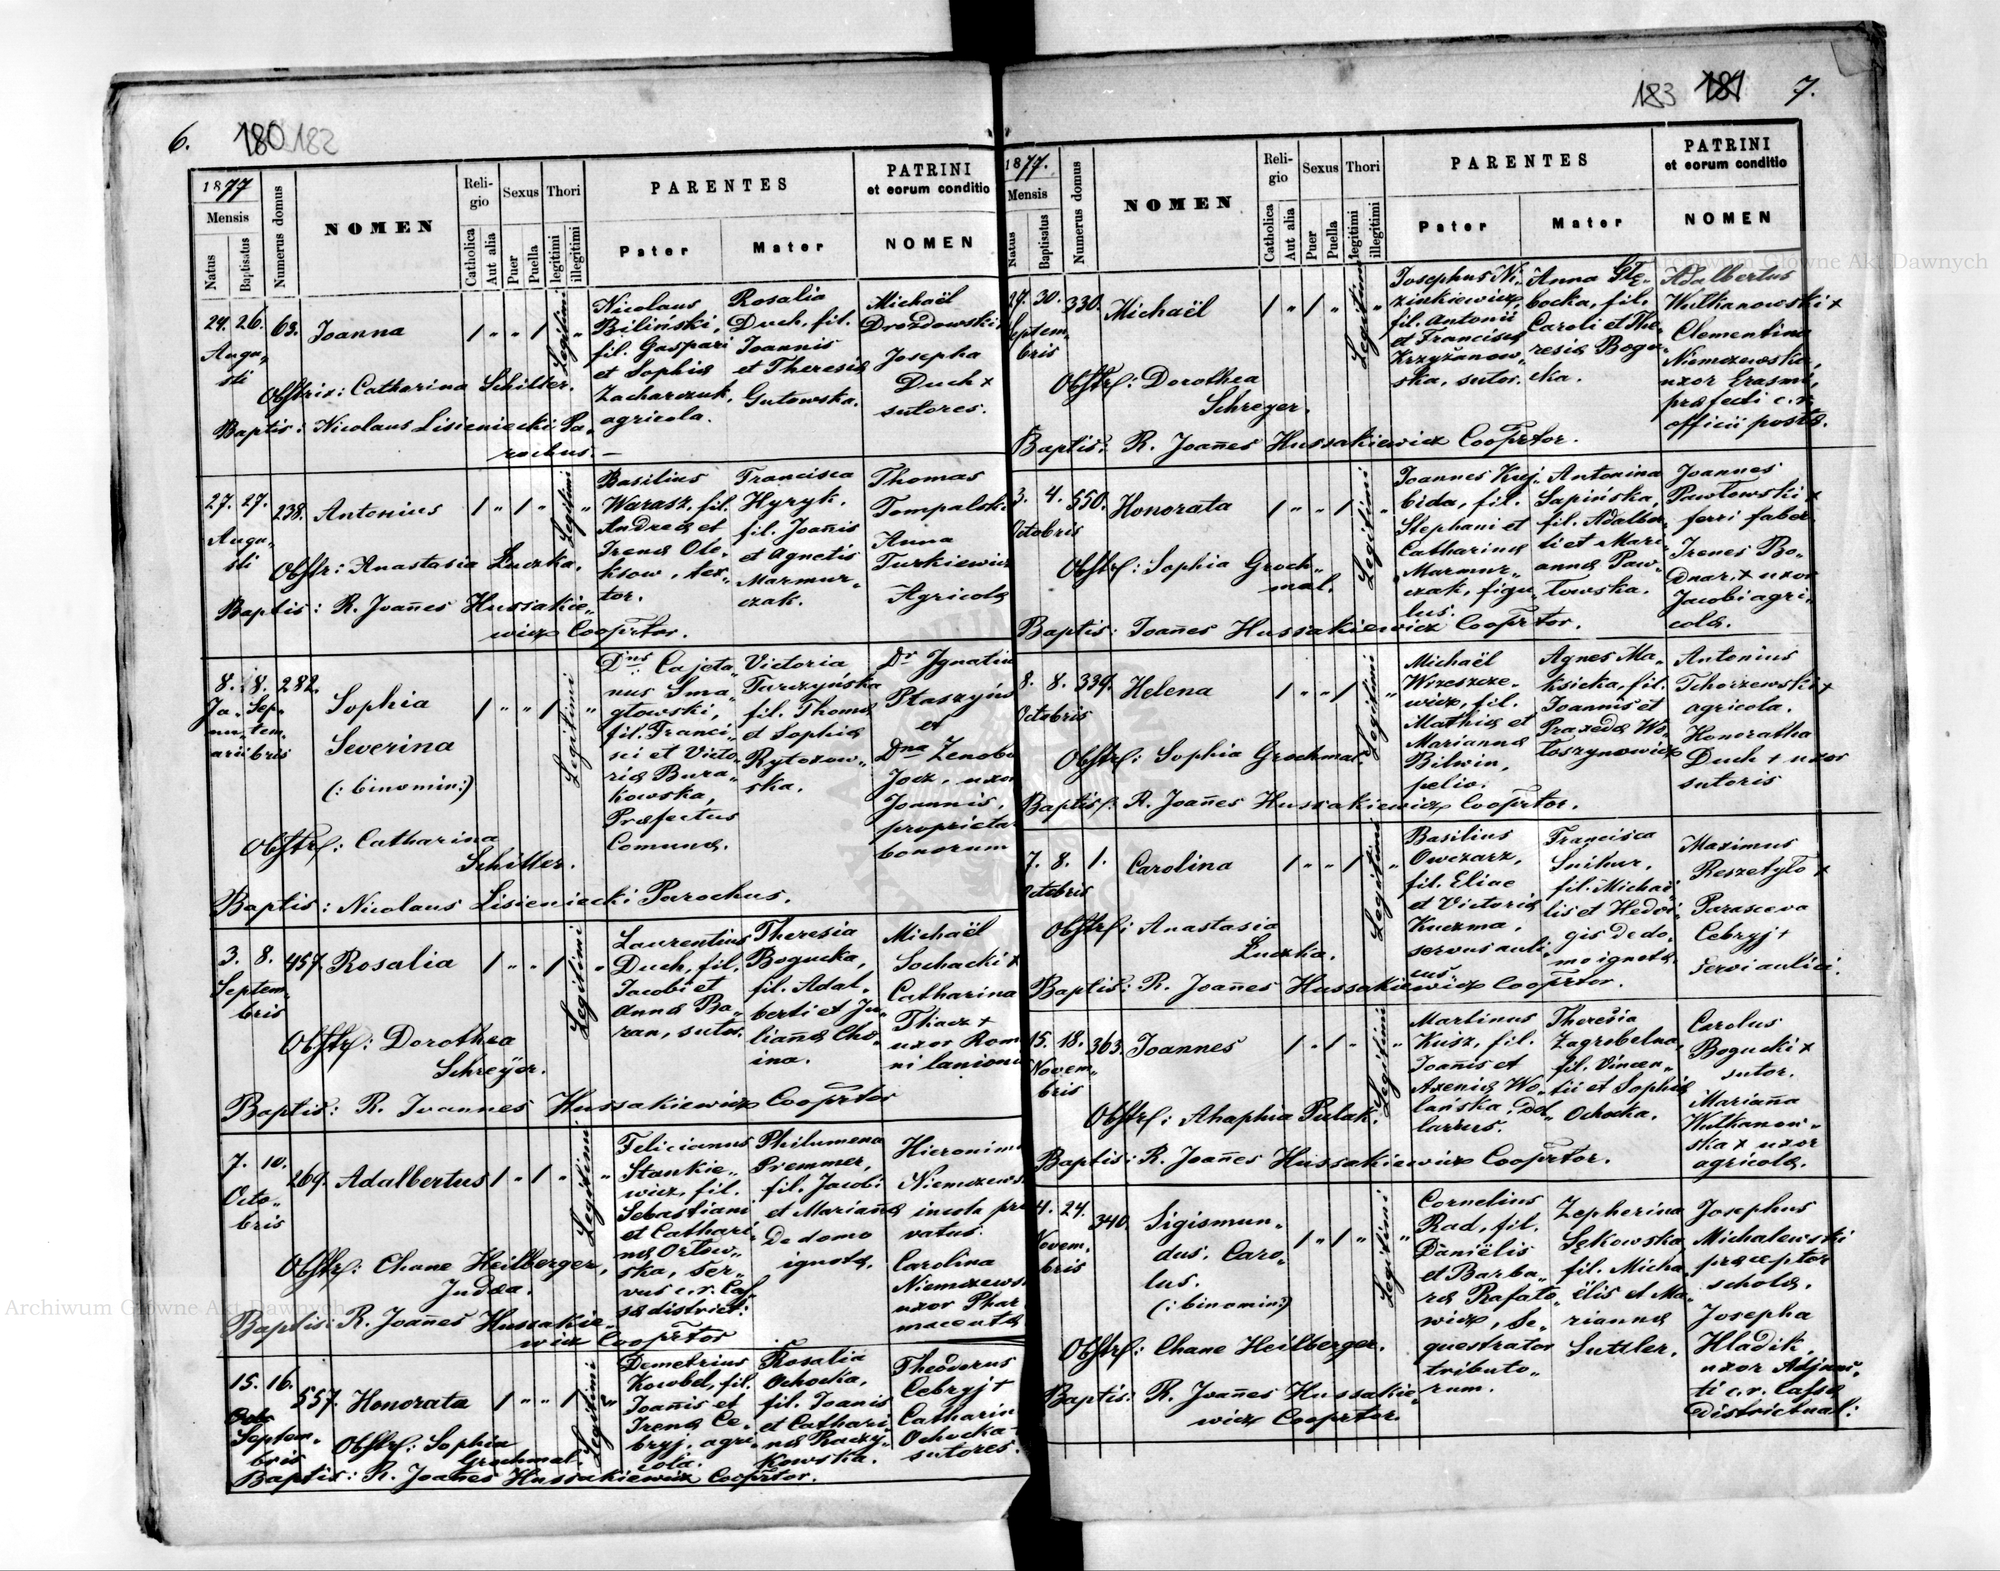 6. 180 182
1877
Mensis
Natus
Baptisatus
Numerus domus
NOMEN
Religio
Catholica
Aut alia
Sexus
Puer
Puella
Thori
legitimi
illegitimi
PARENTES
Pater
Mater
PATRINI
et eorum conditio
NOMEN
24. 26. Augusti
63.
Joanna
1 " " 1 Legitimi "
Nicolaus
Biliński,
fil. Gaspari
et Sophiæ
Zacharczuk,
agricola.
Rosalia
Duch, fil.
Joannis
et Theresiæ
Gutowska.
Michaël
Drozdowski,
Josepha
Duch +
sutores.
Obstrix: Catharina Schilter.
Baptis: Nicolaus Lisieniecki Pa-
rochus.
27. 27. Augusti
238.
Antonius
1 " 1 " Legitimi "
Basilius
Warasz, fil.
Andreæ et
Irenæ Ole-
ksow, tex-
tor.
Francisca
Hyryk.
fil. Joañis
et Agnetis
Marmur-
czak.
Thomas
Tompalski
Anna
Turkiewicz
Agricolæ
Obstr: Anastasia Łuczka.
Baptis: R. Joañes Hussakie-
wicz Cooprtor.
8. Januarii
8. Septembris
282.
Sophia
Severina
(: binomin:)
1 " " 1 Legitimi "
Dnus Cajeta-
nus Sma-
głowski,
fil. Franci-
sci et Victo-
riæ Bura-
kowska,
Præfectus
Comunæ.
Victoria
Turczyńska
fil. Thomæ
et Sophiæ
Rytozow-
ska.
Dr Ignatiu
Ptaszyńs
et
Dna Zenobi
Jocz, uxor
Joannis,
proprietar
bonorum
Obstr: Catharina
Schilter.
Baptis: Nicolaus Lisieniecki Parochus.
3. 8. Septembris
457.
Rosalia
1 " " 1 Legitimi "
Laurentius
Duch, fil.
Jacobi et
Annæ Ba-
ran, sutor.
Theresia
Bogucka,
fil. Adal-
berti et Ju-
liannæ Cho-
ina.
Michaël
Sochacki +
Catharina
Tkacz +
uxor Rom
ni lanionis
Obstr: Dorothea
Schreÿer.
Baptis: R. Joannes Hussakiewicz Cooprtor
7. 10. Octobris
269.
Adalbertus
1 " 1 " Legitimi "
Felicianus
Stankie-
wicz, fil.
Sebastiani
et Cathari-
næ Ortow-
ska, ser-
vus c.r. Cas-
sæ district:
Philumena
Premmer,
fil. Jacobi
et Mariañæ
de domo
ignota.
Hieronimu
Niemczews
incola pri
vatus.
Carolina
Niemczews
uxor Phar
maceutæ
Obstr: Chane Heilberger,
Judæa.
Baptis: R. Joañes Hussakie-
wicz Cooprtor
15. 16. Septembris
557.
Honorata
1 " " 1 Legitimi "
Demetrius
Kowbel, fil.
Joañis et
Irenæ Ce-
bryj, agri-
cola.
Rosalia
Ochocka,
fil. Joanis
et Cathari-
næ Raczy-
kowska.
Theodorus
Cebryj +
Catharin
Ochocka +
sutores.
Obstr: Sophia
Grochmal.
Baptis: R. Joañes Hussakiewicz Cooprtor.
183 181 7.
1877.
Mensis
Natus
Baptisatus
Numerus domus
NOMEN
Religio
Catholica
Aut alia
Sexus
Puer
Puella
Thori
legitimi
illegitimi
PARENTES
Pater
Mater
PATRINI
et eorum conditio
NOMEN
29. 30. Septembris
330.
Michaël
1 " 1 " Legitimi "
Josephus Ni-
zinkiewicz,
fil. Antonii
et Franciscæ
Krzyżanow-
ska, sutor.
Anna Głę-
bocka, fil.
Caroli et The-
resiæ Bogu-
cka.
Adalbertus
Wułkanowski +
Clementina
Niemczewska,
uxor Erasmi,
præfecti c.r.
officii postæ.
Obstr: Dorothea
Schreyer.
Baptis: R. Joañes Hussakiewicz Cooprtor.
3. 4. Octobris
550.
Honorata
1 " " 1 Legitimi "
Joannes Kuj-
bida, fil.
Stephani et
Catharinæ
Marmur-
czak, figu-
lus.
Antonina
Sapińska,
fil. Adalber-
ti et Mari-
annæ Paw-
łowska.
Joannes
Pawłowski +
ferri faber
Irenes Bo-
dnar, + uxor
Jacobi agri-
colæ.
Obstr: Sophia Groch-
mal.
Baptis: Joañes Hussakiewicz Cooprtor.
8. 8. Octobris
339.
Helena
1 " " 1 Legitimi "
Michaël
Wrzeszcze-
wicz, fil.
Mathiæ et
Mariannæ
Bilwin,
pelio.
Agnes Ma-
ksicka, fil.
Joannis et
Praxedæ Wo-
łoszynowicz
Antonius
Tchorzewski +
agricola.
Honoratha
Duch + uxor
sutoris
Obstr: Sophia Grochmal.
Baptis: R. Joañes Hussakiewicz Cooprtor.
7. 8. Octobris
1.
Carolina
1 " " 1 Legitimi "
Basilius
Owczarz,
fil. Eliae
et Victoriæ
Kuczma,
servus auli-
cus.
Francisca
Snihur,
fil. Michaë-
lis et Hedvi-
gis de do-
mo ignota.
Maximus
Reszetyło +
Parasceva
Cebryj +
servi aulici.
Obstr: Anastasia
Łuczka.
Baptis: R. Joañes Hussakiewicz Cooprtor.
15. 18. Novembris
363.
Joannes
1 " 1 " Legitimi "
Martinus
Kusz, fil.
Joañis et
Axeniæ Wo-
lańska, dol-
larius.
Theresia
Zagrobelna,
fil. Vincen-
tii et Sophiæ
Ochocka.
Carolus
Bogucki +
sutor.
Mariaña
Wułkanow-
ska + uxor
agricolæ.
Obstr: Ahaphia Pulak.
Baptis: R. Joañes Hussakiewicz Cooprtor.
4. 24. Novembris
340.
Sigismun-
dus. Caro-
lus.
(: binomin:)
1 " 1 " Legitimi "
Cornelius
Rad, fil.
Daniëlis
et Barba-
ræ Rafało-
wicz, Se-
questrator
tributo-
rum.
Zepherina
Sękowska,
fil. Micha-
ëlis et Ma-
riannæ
Suttler.
Josephus
Michalewski
præceptor
scholæ.
Josepha
Hladik,
uxor Adjunc-
ti c.r. Cassæ
districtual:
Obstr: Chane Heilberger.
Baptis: R. Joañes Hussakie-
wicz Cooprtor.
Archiwum Główne Akt Dawnych
Archiwum Główne Akt Dawnych